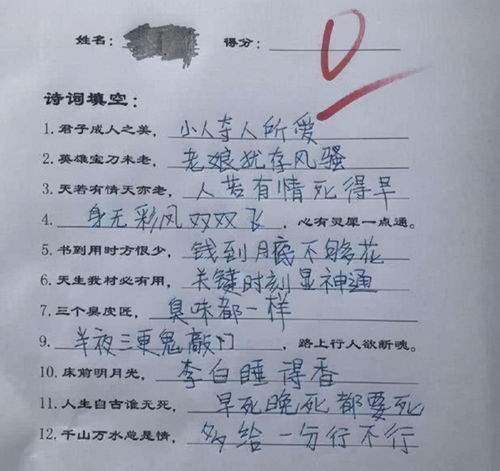 姓名： 得分： 0
诗词填空：
1. 君子成人之美，小人夺人所爱
2. 英雄宝刀未老，老娘犹存风骚
3. 天若有情天亦老，人若有情死得早
4. 身无彩凤双双飞，心有灵犀一点通。
5. 书到用时方恨少，钱到月底不够花
6. 天生我材必有用，关键时刻显神通
7. 三个臭皮匠，臭味都一样
9. 半夜三更鬼敲门，路上行人欲断魂。
10. 床前明月光，李白睡得香
11. 人生自古谁无死，早死晚死都要死
12. 千山万水总是情，多给一分行不行